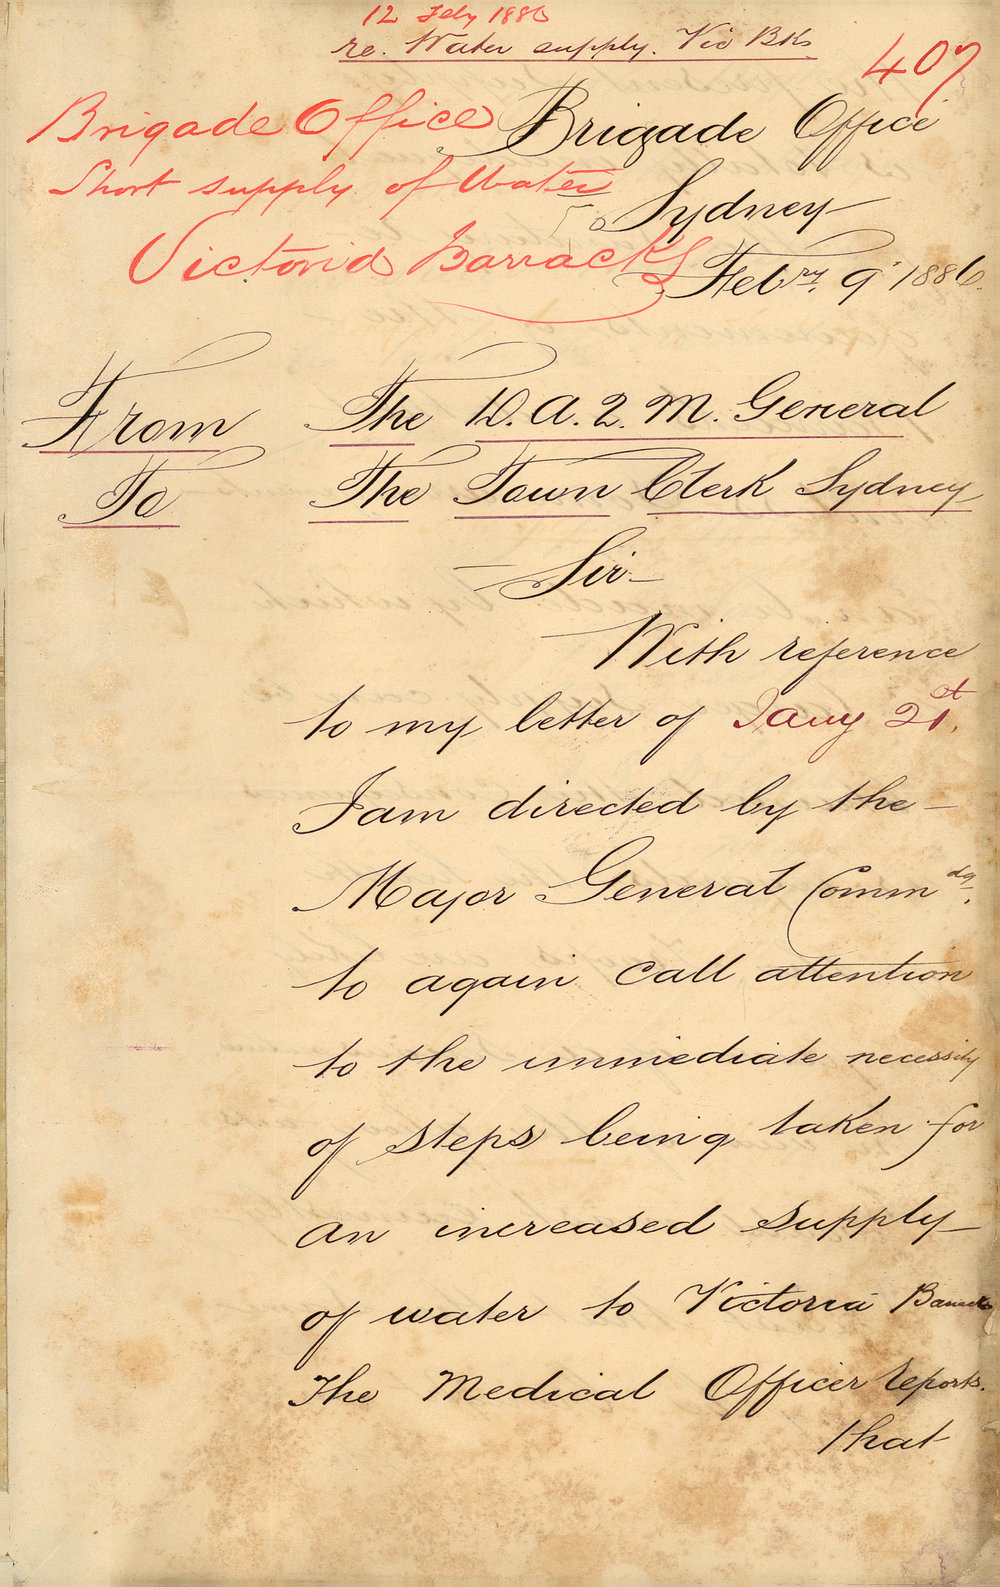 12 Feby 1886
re. Water supply. Vic Bks
407
Brigade Office
Short supply of Water
Victoria Barracks
Brigade Office
Sydney
Febry. 9 1886.
From The D. A. Q. M. General
To The Town Clerk Sydney
Sir
With reference
to my letter of Jany 21st.
I am directed by the
Major General Commdg.
to again call attention
to the immediate necessity
of steps being taken for
an increased supply
of water to Victoria Barracks
The Medical Officer reports.
that